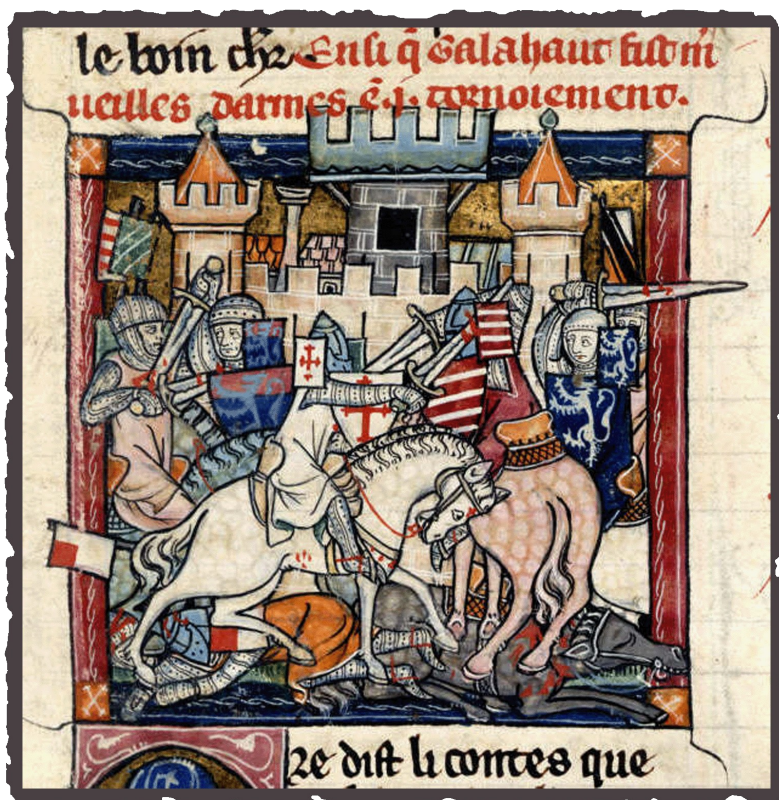 le boin chr Ensi q̃ Galahaut fist m̃
ueilles darmes ẽ .j. tornoiement.
Re dist li contes que